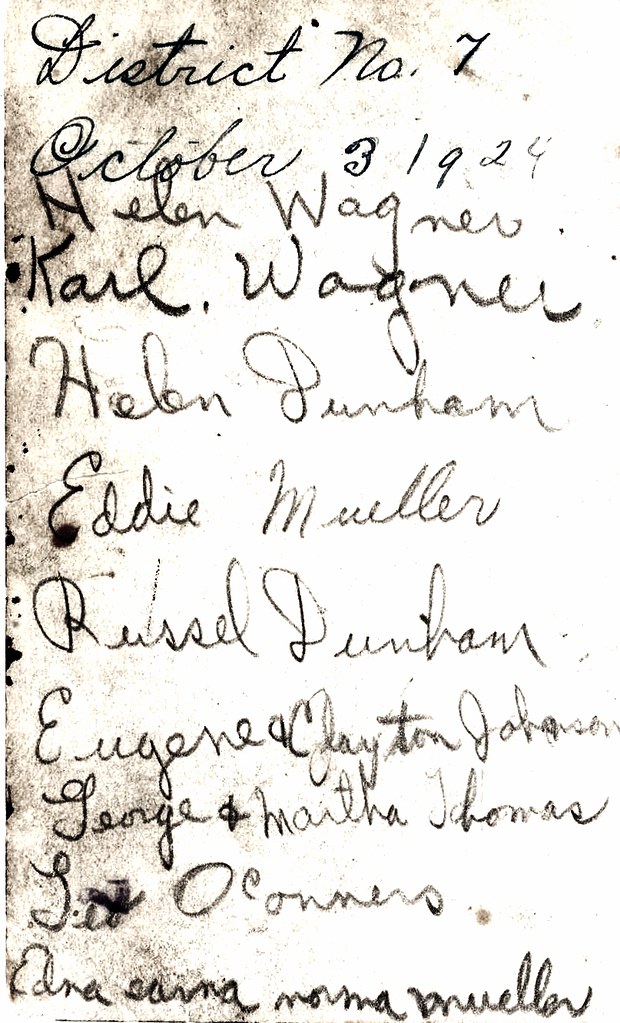 District No. 7
October 3 1924
Helen Wagner.
Karl. Wagner
Helen Dunham
Eddie Mueller
Russel Dunham.
Eugene & Clayton Johnson
George & Martha Thomas
Geo OConners
Edna earna norma mueller